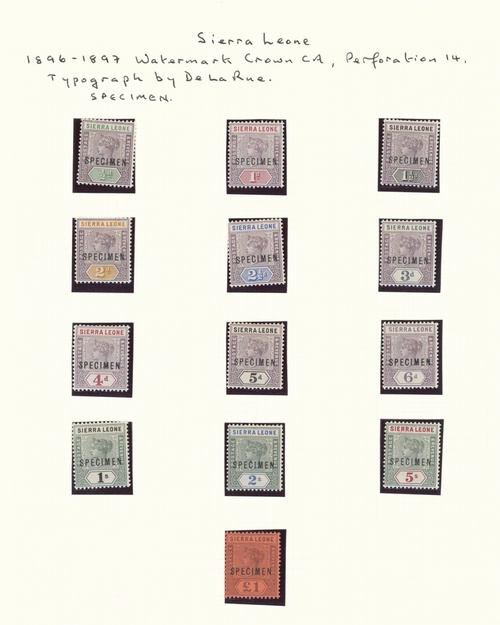 Sierra Leone
1896-1897 Watermark Crown CA, Perforation 14.
Typograph by De La Rue.
SPECIMEN.
SIERRA LEONE SIERRA LEONE SIERRA LEONE
SPECIMEN SPECIMEN SPECIMEN
½d 1d 1½d
SIERRA LEONE SIERRA LEONE SIERRA LEONE
SPECIMEN SPECIMEN SPECIMEN
2d 2½d 3d
SIERRA LEONE SIERRA LEONE SIERRA LEONE
SPECIMEN SPECIMEN SPECIMEN
4d 5d 6d
SIERRA LEONE SIERRA LEONE SIERRA LEONE
SPECIMEN SPECIMEN SPECIMEN
1s 2s 5s
SIERRA LEONE
SPECIMEN
£1